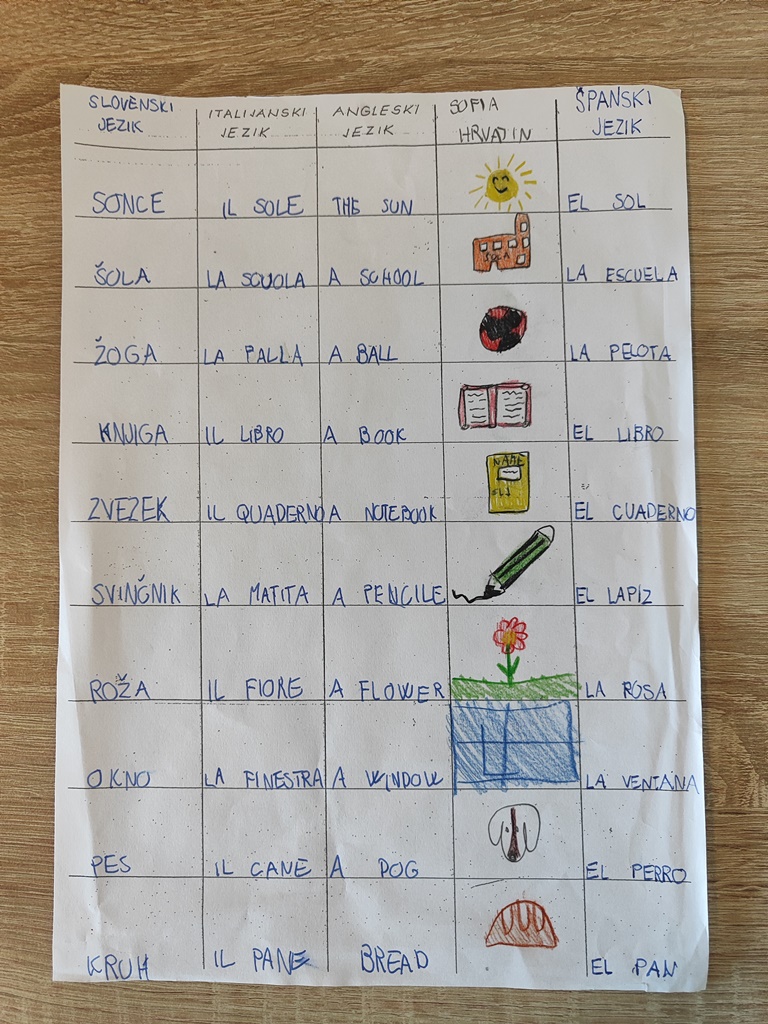 SLOVENSKI JEZIK ITALIJANSKI JEZIK ANGLESKI JEZIK SOFIA HRVATIN ŠPANSKI JEZIK
SONCE IL SOLE THE SUN EL SOL
ŠOLA LA SCUOLA A SCHOOL LA ESCUELA
ŽOGA LA PALLA A BALL LA PELOTA
KNJIGA IL LIBRO A BOOK EL LIBRO
ZVEZEK IL QUADERNO A NOTEBOOK SLJ EL CUADERNO
SVINČNIK LA MATITA A PENCILE EL LAPIZ
ROŽA IL FIORE A FLOWER LA ROSA
OKNO LA FINESTRA A WINDOW LA VENTANA
PES IL CANE A DOG EL PERRO
KRUH IL PANE BREAD EL PAN